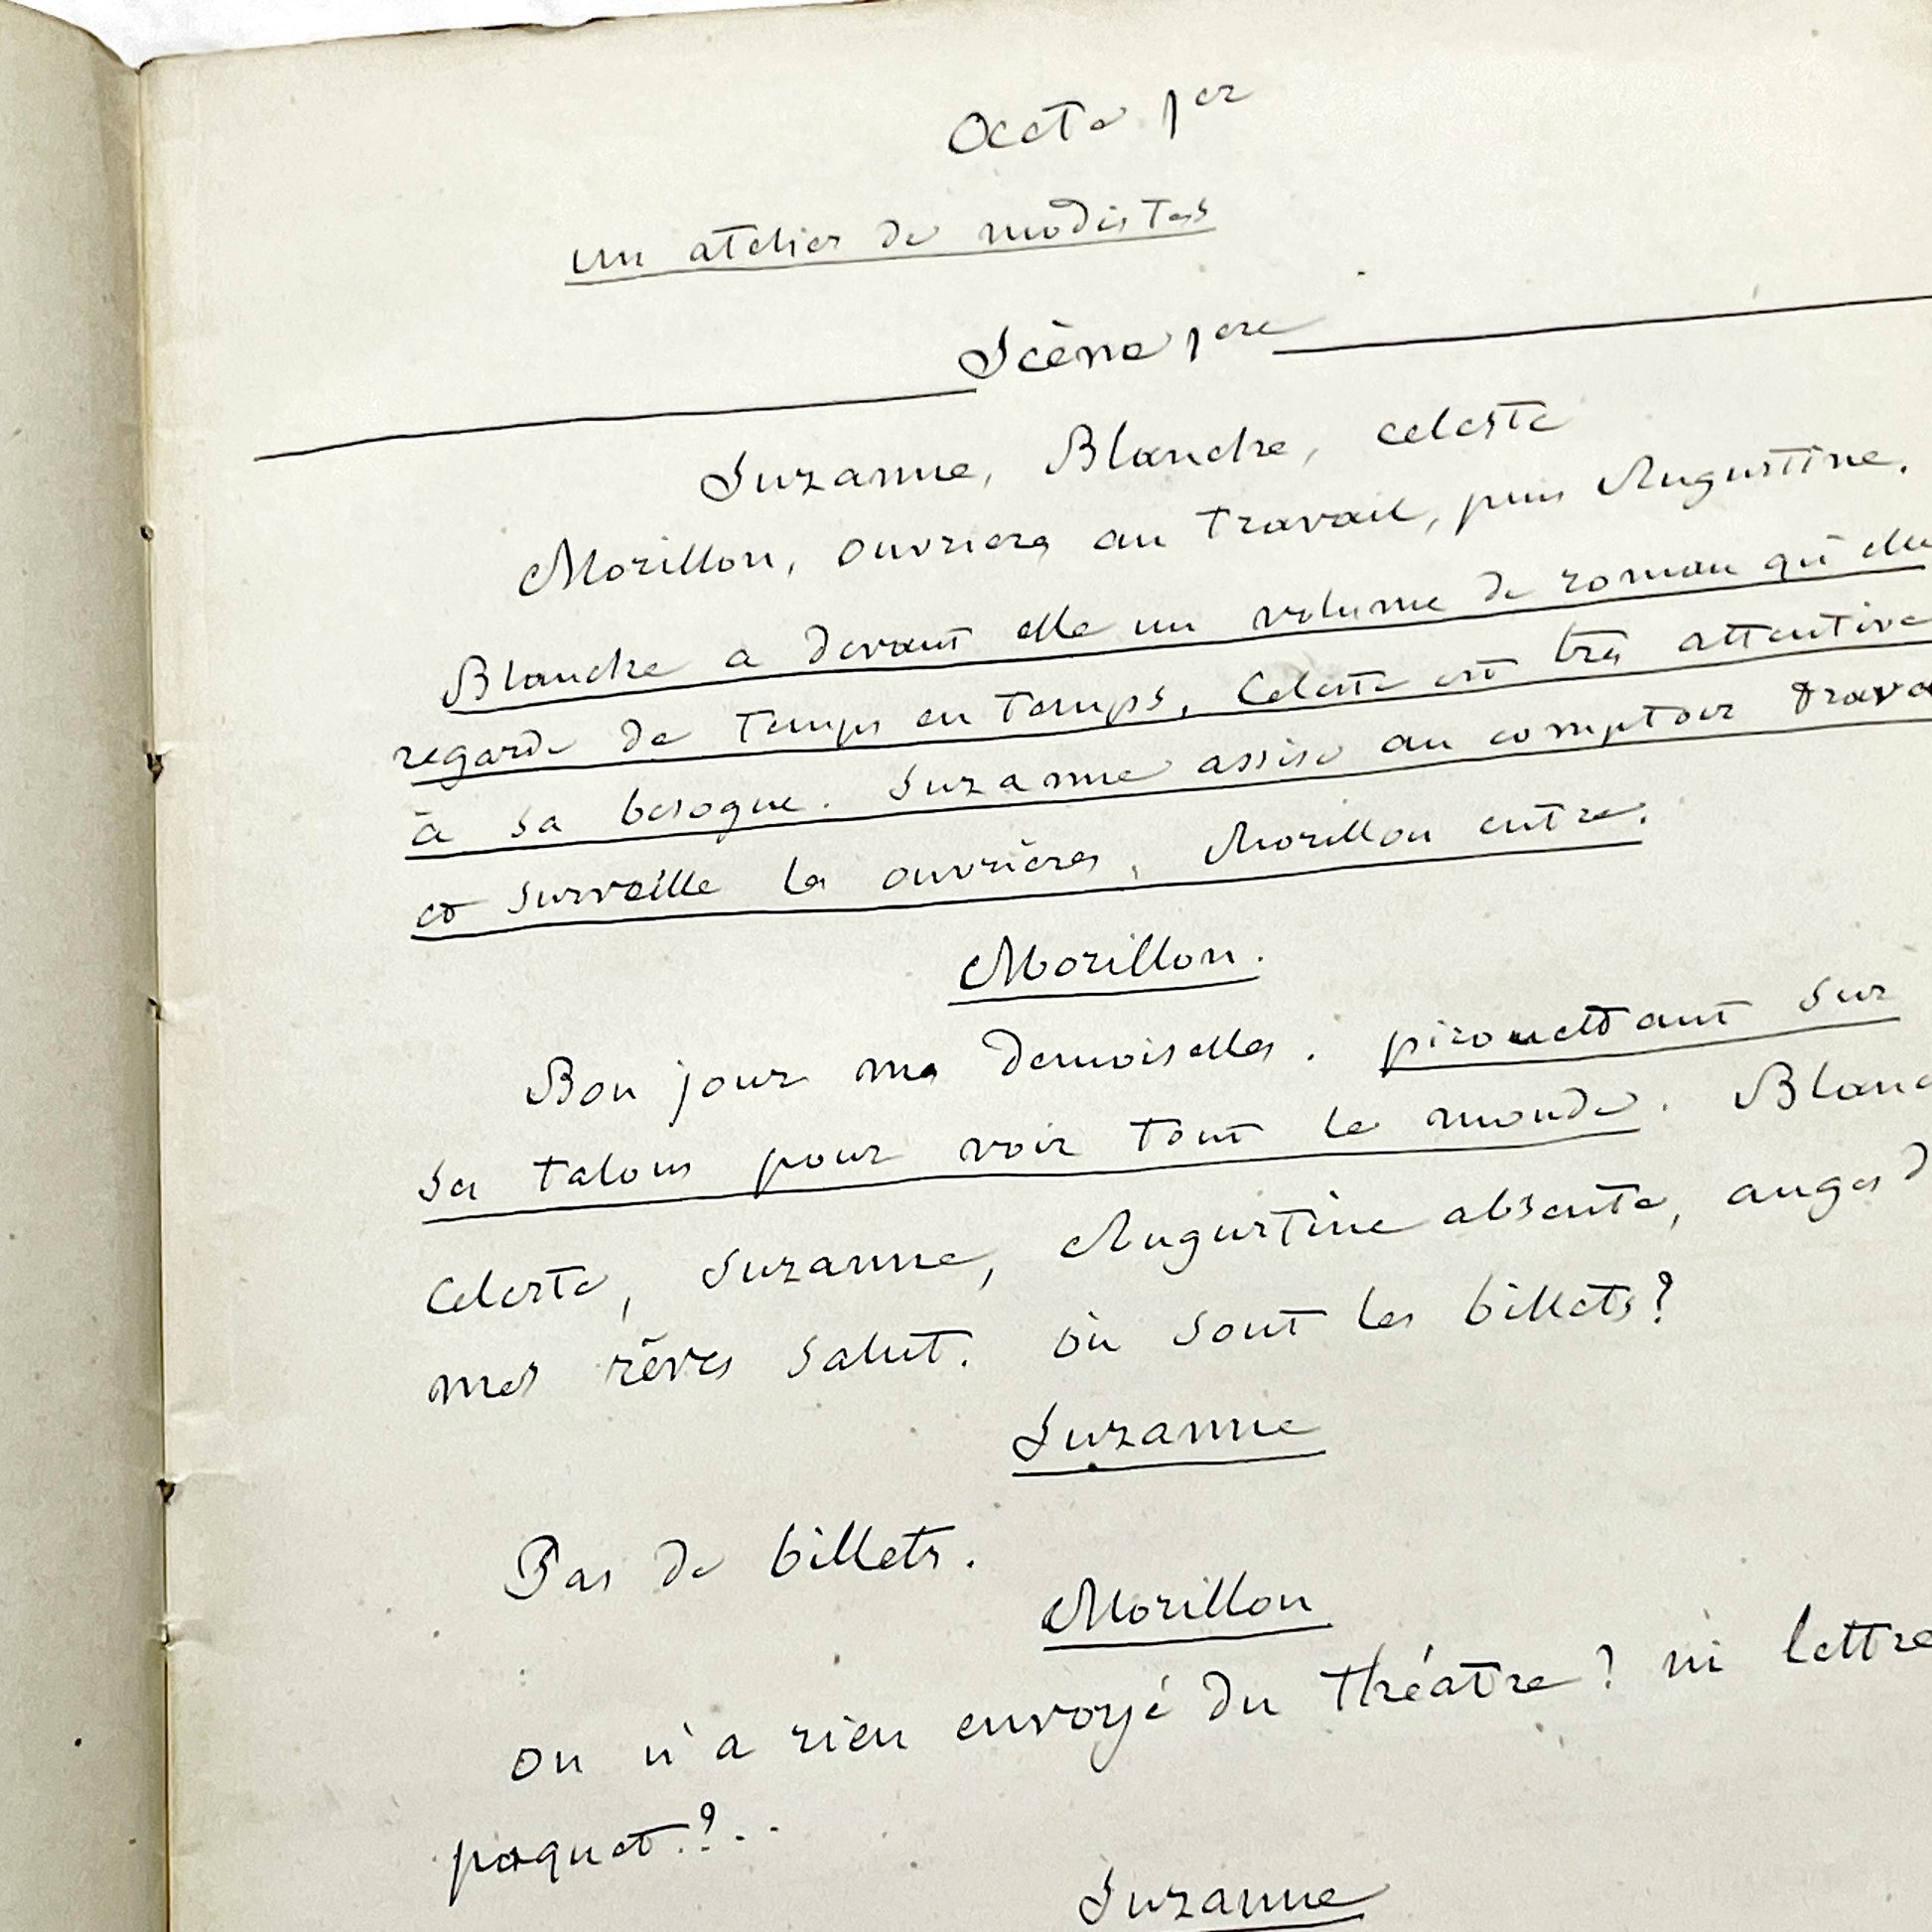 Acte 1er
un atelier de modistes
Scène 1ere
Suzanne, Blanche, celeste
Morillon, ouvrieres au travail, puis Augustine.
Blanche a devant elle un volume de roman qu'elle
regarde de temps en temps, Celeste est très attentive
à sa besogne. Suzanne assise au comptoir trava
et surveille les ouvrières, Morillon entre.
Morillon.
Bon jour mes demoiselles. pirouettant sur
ses talons pour voir tout le monde. Blanc
Celeste, Suzanne, Augustine absente, anges d
mes rêves salut. où sont les billets?
Suzanne
Pas de billets.
Morillon
on n'a rien envoyé du théatre? ni lettre
paquet?..
Suzanne